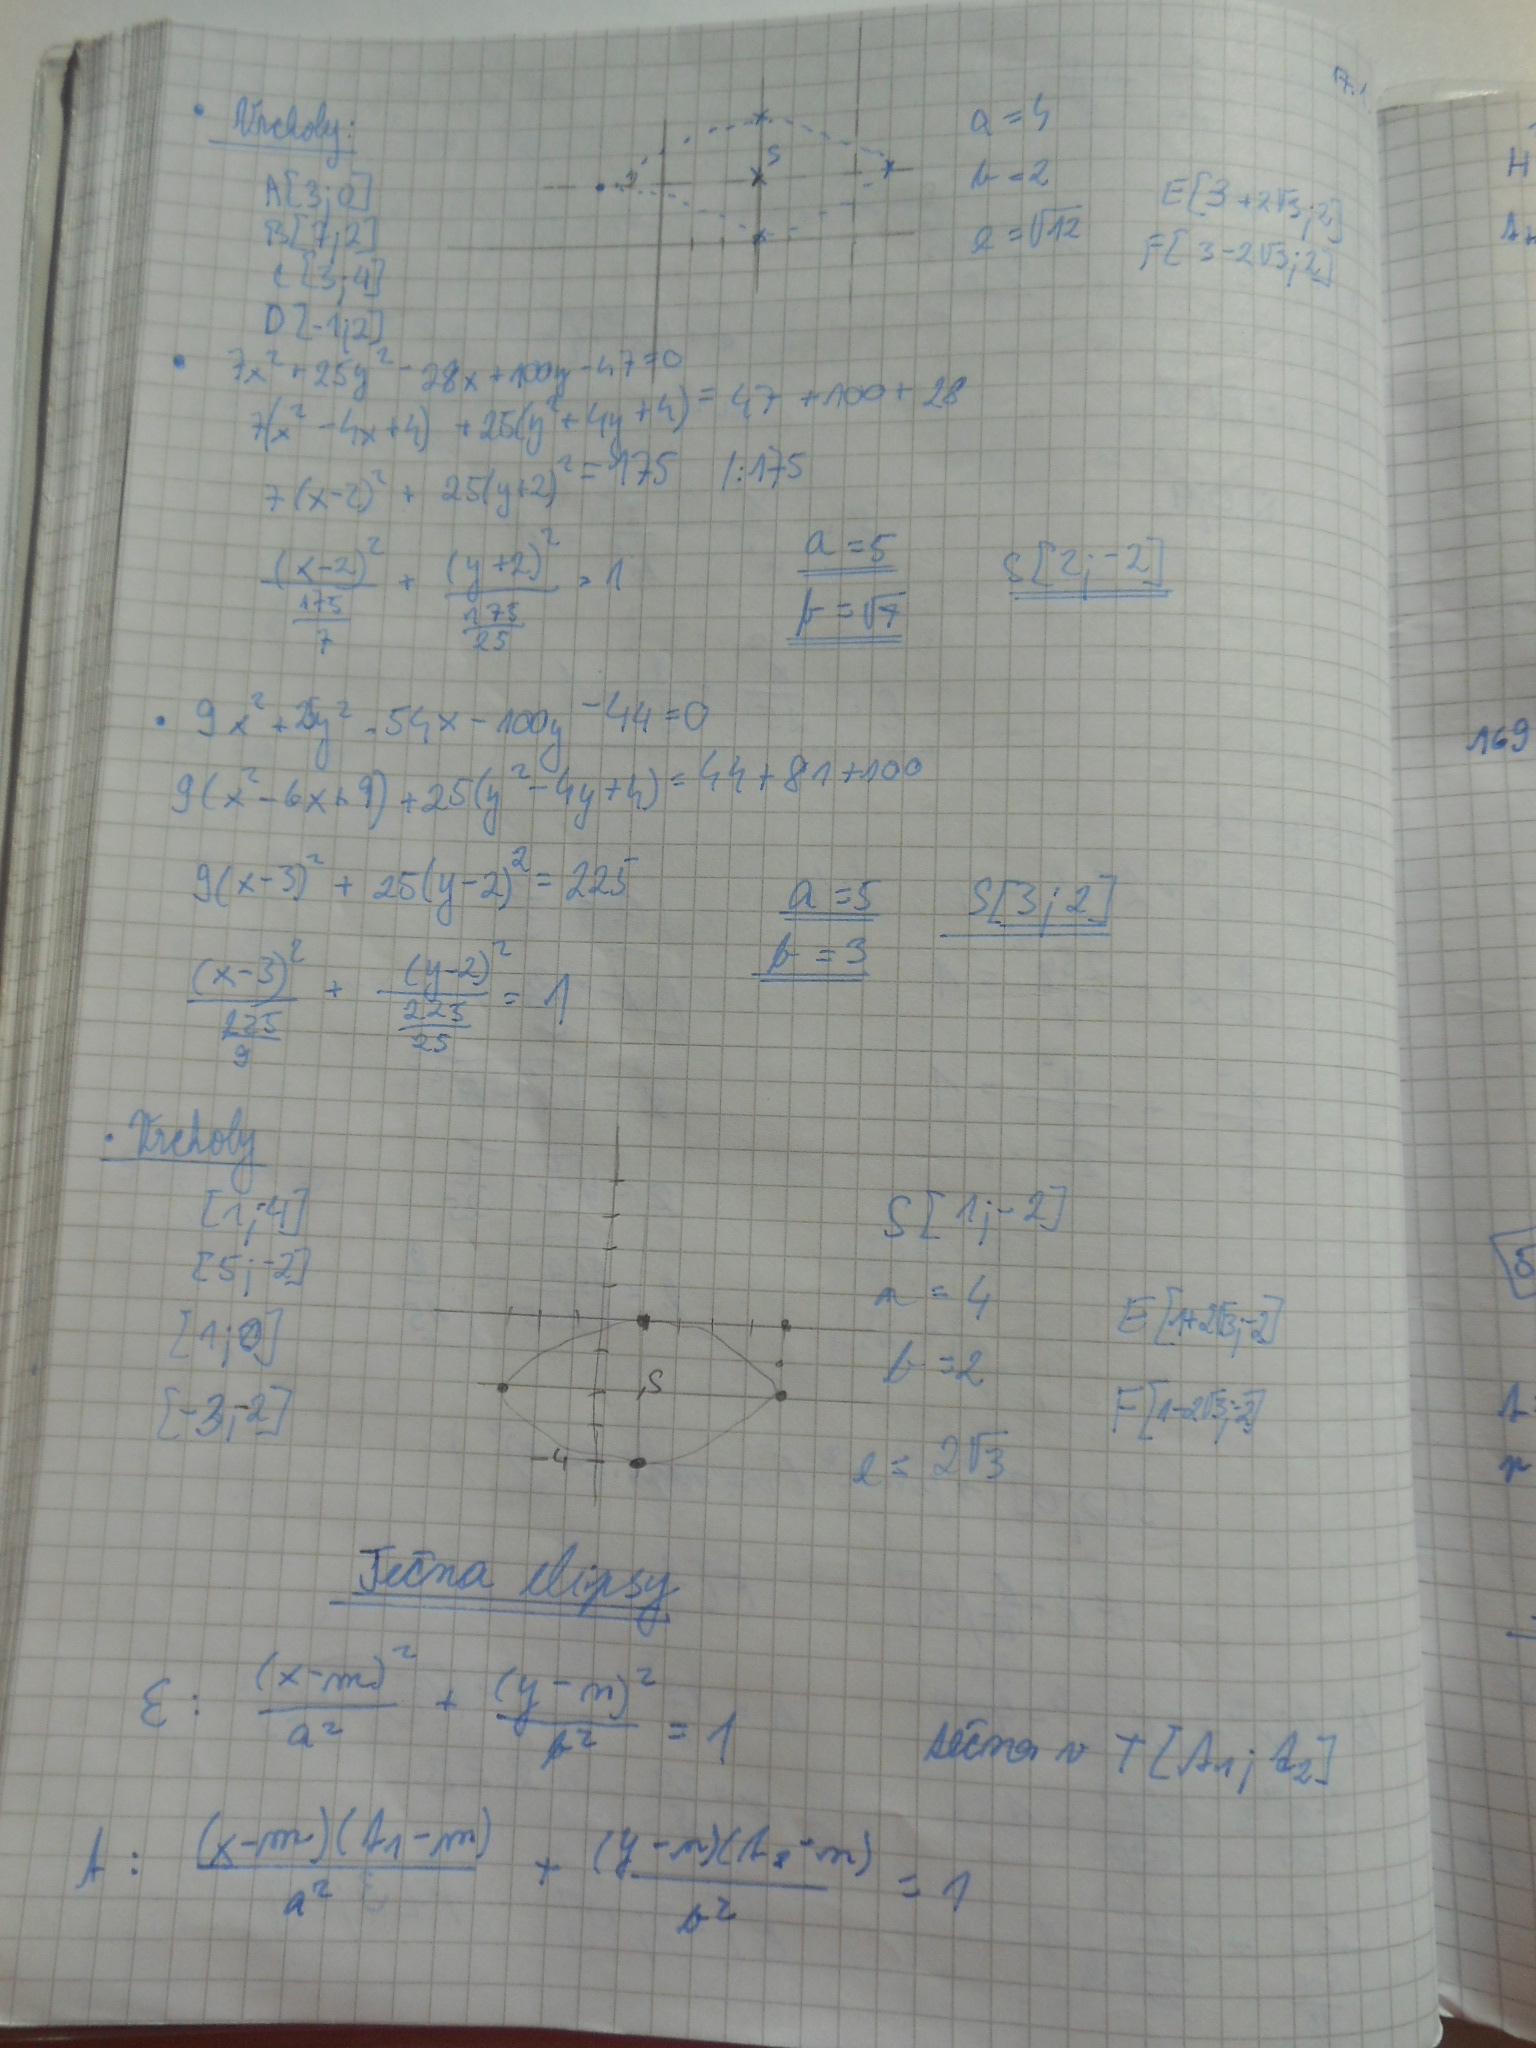 17.1
• Vrcholy:
A[3;0]
B[7;2]
C[3;4]
D[-1;2]
S
a = 4
b = 2
e = √12
E[3+2√3;2]
F[3-2√3;2]
• 7x² + 25y² - 28x + 100y - 47 = 0
7(x² - 4x + 4) + 25(y² + 4y + 4) = 47 + 100 + 28
7(x-2)² + 25(y+2)² = 175 /:175
(x-2)²/(175/7) + (y+2)²/(175/25) = 1
a = 5
b = √7
S[2;-2]
• 9x² + 25y² - 54x - 100y - 44 = 0
9(x² - 6x + 9) + 25(y² - 4y + 4) = 44 + 81 + 100
9(x-3)² + 25(y-2)² = 225
(x-3)²/(225/9) + (y-2)²/(225/25) = 1
a = 5
b = 3
S[3;2]
• Vrcholy
[1;-4]
[5;-2]
[1;0]
[-3;-2]
S
-4
S[1;-2]
a = 4
b = 2
e = 2√3
E[1+2√3;-2]
F[1-2√3;-2]
Tečna elipsy
ε: (x-m)²/a² + (y-n)²/b² = 1
tečna v T[t₁;t₂]
t: (x-m)(t₁-m)/a² + (y-n)(t₂-n)/b² = 1
H
169